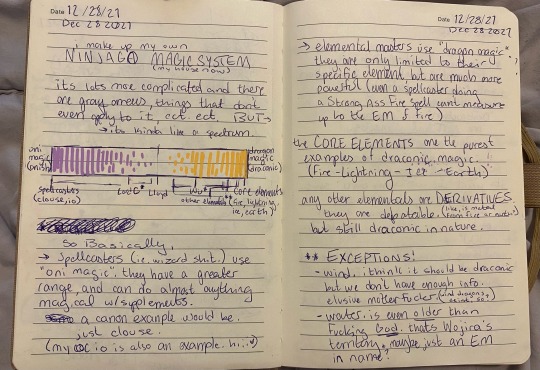 Date 12/28/21
Dec 28 2021
i make up my own
NINJAGO MAGIC SYSTEM
(my house now)
its lots more complicated and there
are gray areas, things that dont
even apply to it, ect. ect. BUT→
→ its kinda like a spectrum.
oni
magic
(onish)
dragon
magic
draconic)
spellcasters
(clouse, io)
Lloyd
other elementals
core elements
(fire, lightning,
ice, earth)
So Basically,
→ Spellcasters (i.e. wizard shit.) use
"oni magic". they have a greater
range, and can do almost anything
magical w/ supplements.
a canon example would be.
just clouse.
(my OC io is also an example. hi..)
Date 12/28/21
Dec 28 2021
→ elemental masters use "dragon magic"
they are only limited to their
specific element but are much more
powerful (even a spellcaster doing
a Strong Ass Fire Spell cant measure
up to the EM of Fire)
the CORE ELEMENTS are the purest
examples of draconic magic.
(Fire - Lightning - Ice - Earth)
any other elementals are DERIVATIVES,
they are debatable. (like, is metal from fire or earth?)
but still draconic in nature.
** EXCEPTIONS!
- wind. i think it should be draconic
but we don't have enough info.
elusive motherfucker.
- water. is even older than
fucking God. thats Wojira's
territory. maybe just an EM
in name?